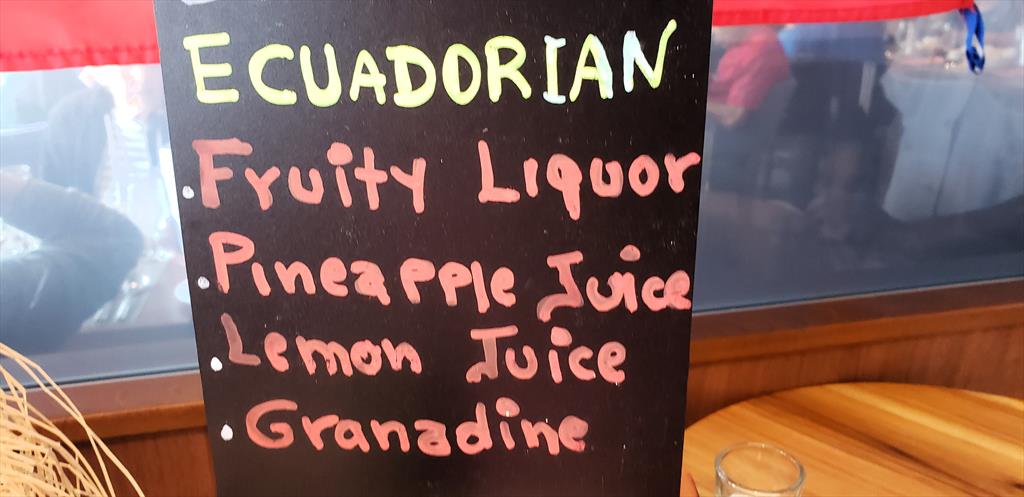 ECUADORIAN
Fruity Liquor
Pineapple Juice
Lemon Juice
Granadine